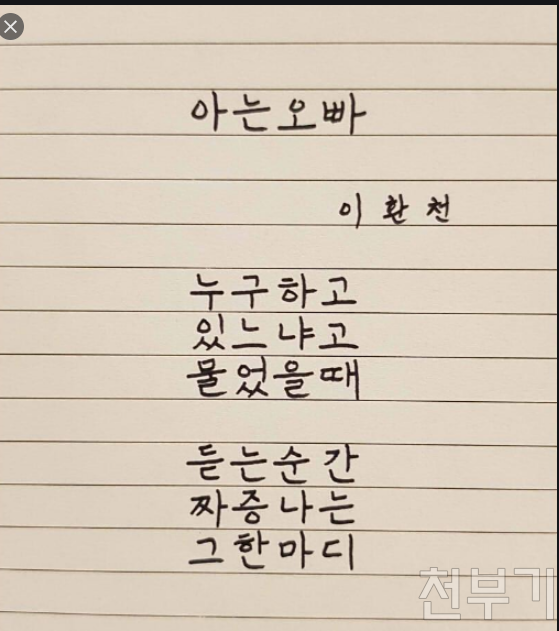 아는오빠
이환천
누구하고
있느냐고
물었을때
듣는순간
짜증나는
그한마디
천부기